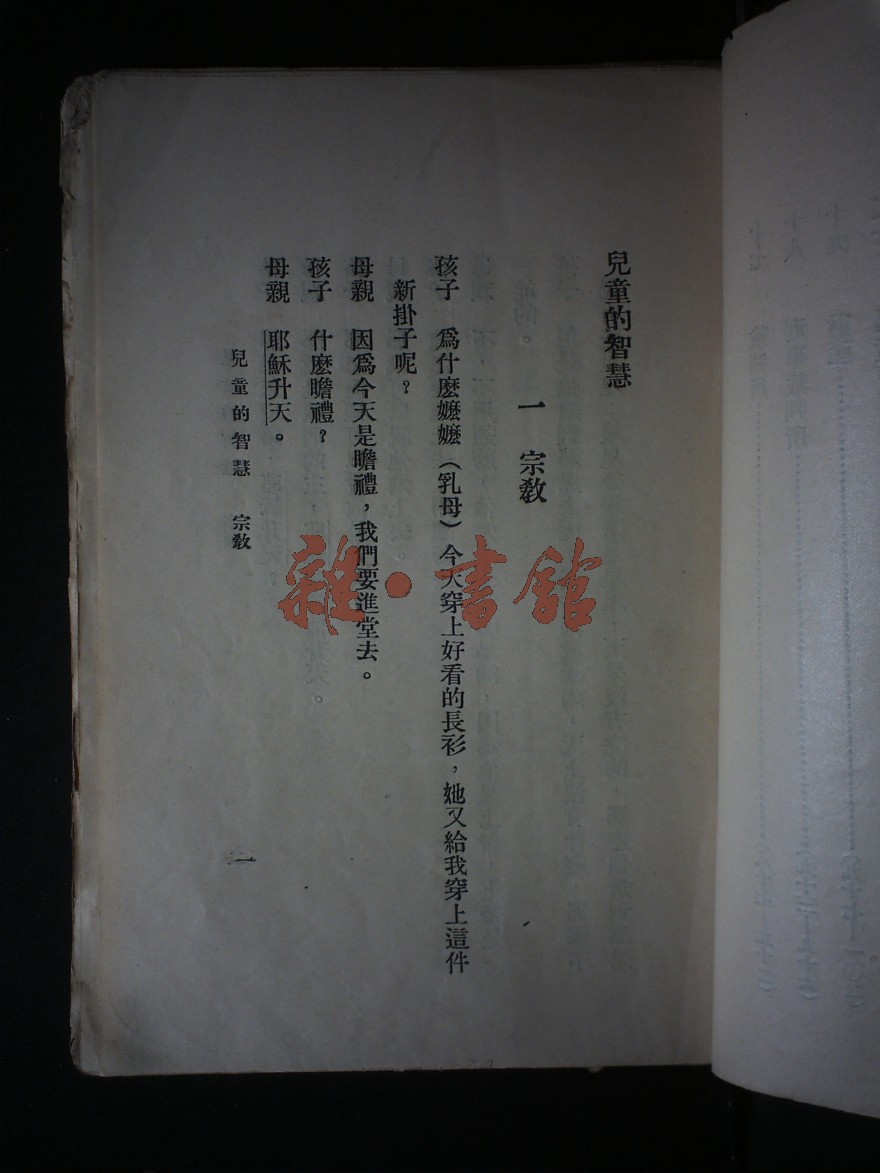 兒童的智慧
一 宗教
孩子 爲什麽嬷嬷（乳母）今天穿上好看的長衫，她又給我穿上這件
新掛子呢？
母親 因爲今天是瞻禮，我們要進堂去。
孩子 什麽瞻禮？
母親 耶穌升天。
兒童的智慧 宗教
一
雜·書館